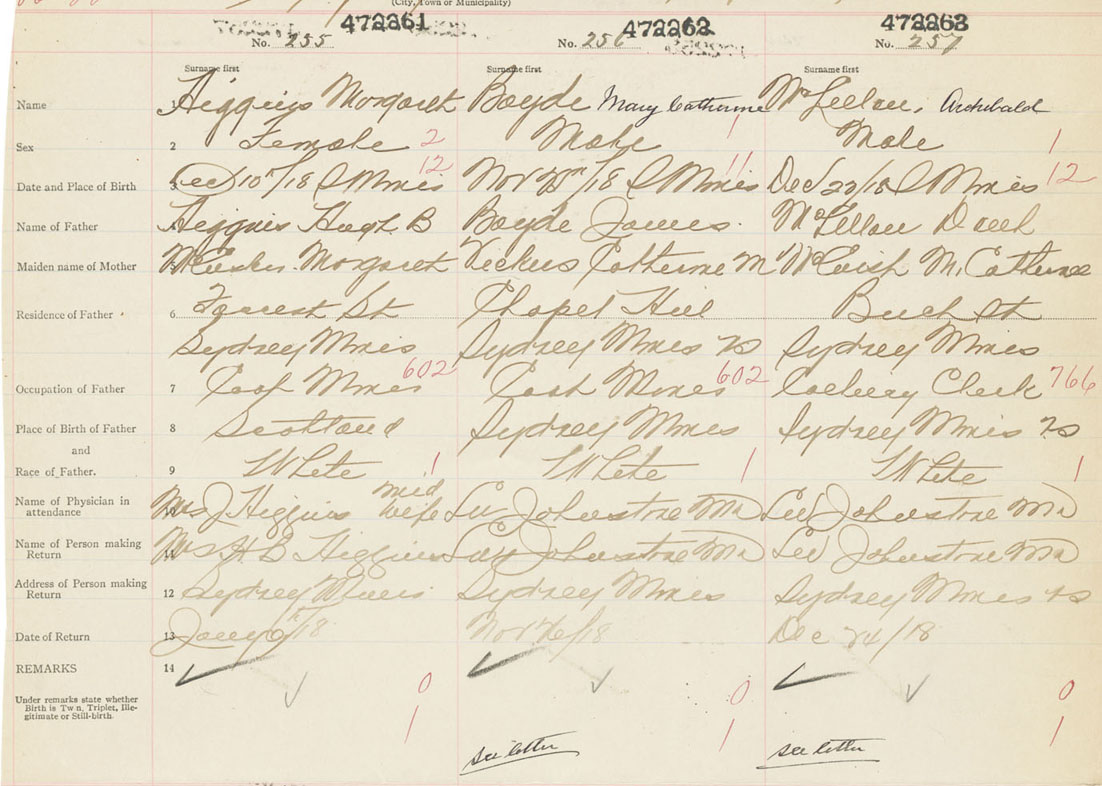 (City, Town or Municipality)
472261 472262 472263
No. 255 No. 256 No. 257
Surname first Surname first Surname first
Name Higgins Margaret Boyde Mary Catherine McLellan, Archibald
Sex 2 Female 2 Male 1 Male 1
Date and Place of Birth 3 Dec 10th/18 S Mines 12 Nov /18 S Mines 11 Dec 20/18 S Mines 12
Name of Father Higgins Hugh B Boyde James. McLellan
Maiden name of Mother Margaret Catherine M M. Catherine
Residence of Father 6 Forrest St Chapel Hill St
Sydney Mines Sydney Mines NS Sydney Mines
602 602 766
Occupation of Father 7 Coal Mines Coal Mines Colliery Clerk
Place of Birth of Father 8 Scotland Sydney Mines Sydney Mines NS
and
Race of Father. 9 White 1 White 1 White 1
Name of Physician in attendance 10 Mrs J Higgins mid wife LW Johnstone MD LW Johnstone MD
Name of Person making Return 11 Mrs H B Higgins LW Johnstone MD LW Johnstone MD
Address of Person making Return 12 Sydney Mines Sydney Mines Sydney Mines NS
Date of Return 13 Jany 9th/18 Nov 26/18 Dec 24/18
REMARKS 14
Under remarks state whether Birth is Twn, Triplet, Illegitimate or Still-birth.
0 0 0
1 1 1
see letter see letter